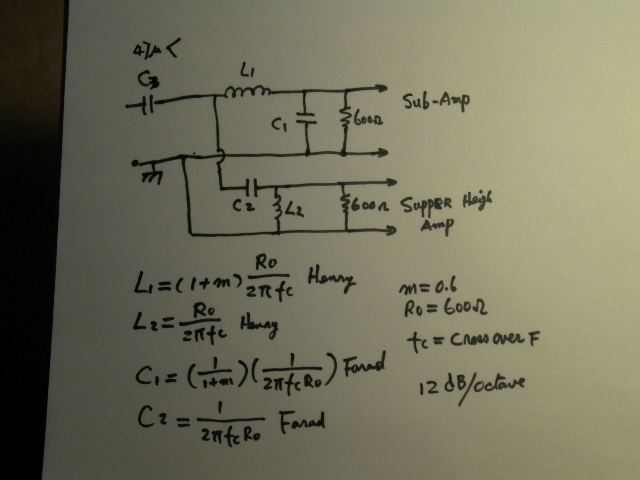 47μ<
C3
L1
C1
600Ω
Sub-Amp
C2
L2
600Ω
Supper High
Amp
L1=(1+m) Ro/2πfc Henry
L2= Ro/2πfc Henry
C1=(1/1+m)(1/2πfcRo) Farad
C2=1/2πfcRo Farad
m=0.6
Ro=600Ω
fc=Crossover F
12dB/octave